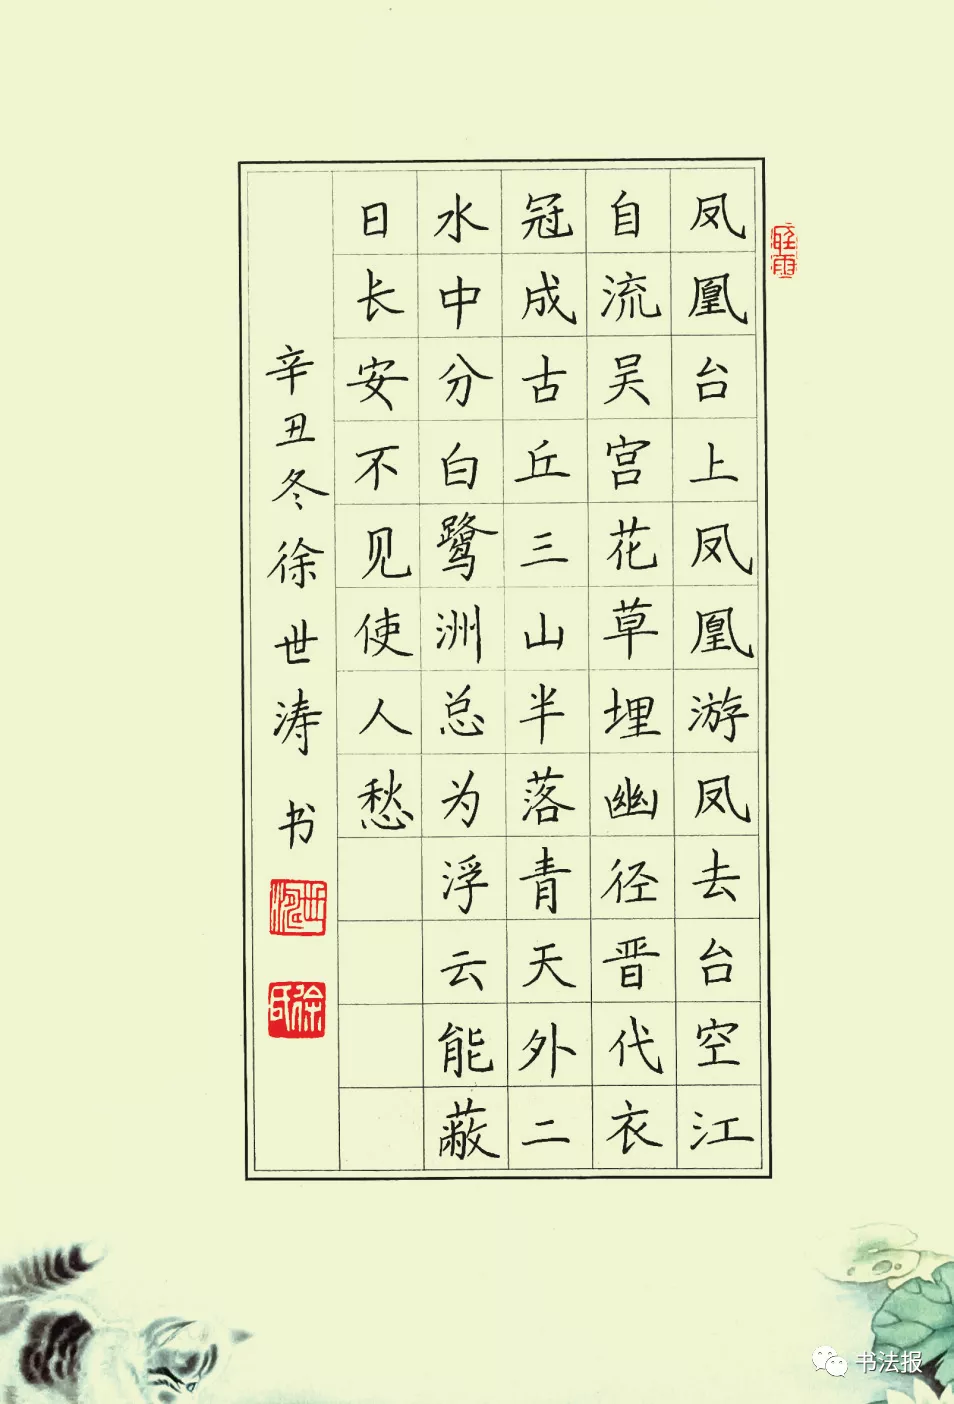 凤凰台上凤凰游凤去台空江
自流吴宫花草埋幽径晋代衣
冠成古丘三山半落青天外二
水中分白鹭洲总为浮云能蔽
日长安不见使人愁
辛丑冬徐世涛书
世涛
徐氏
书法报